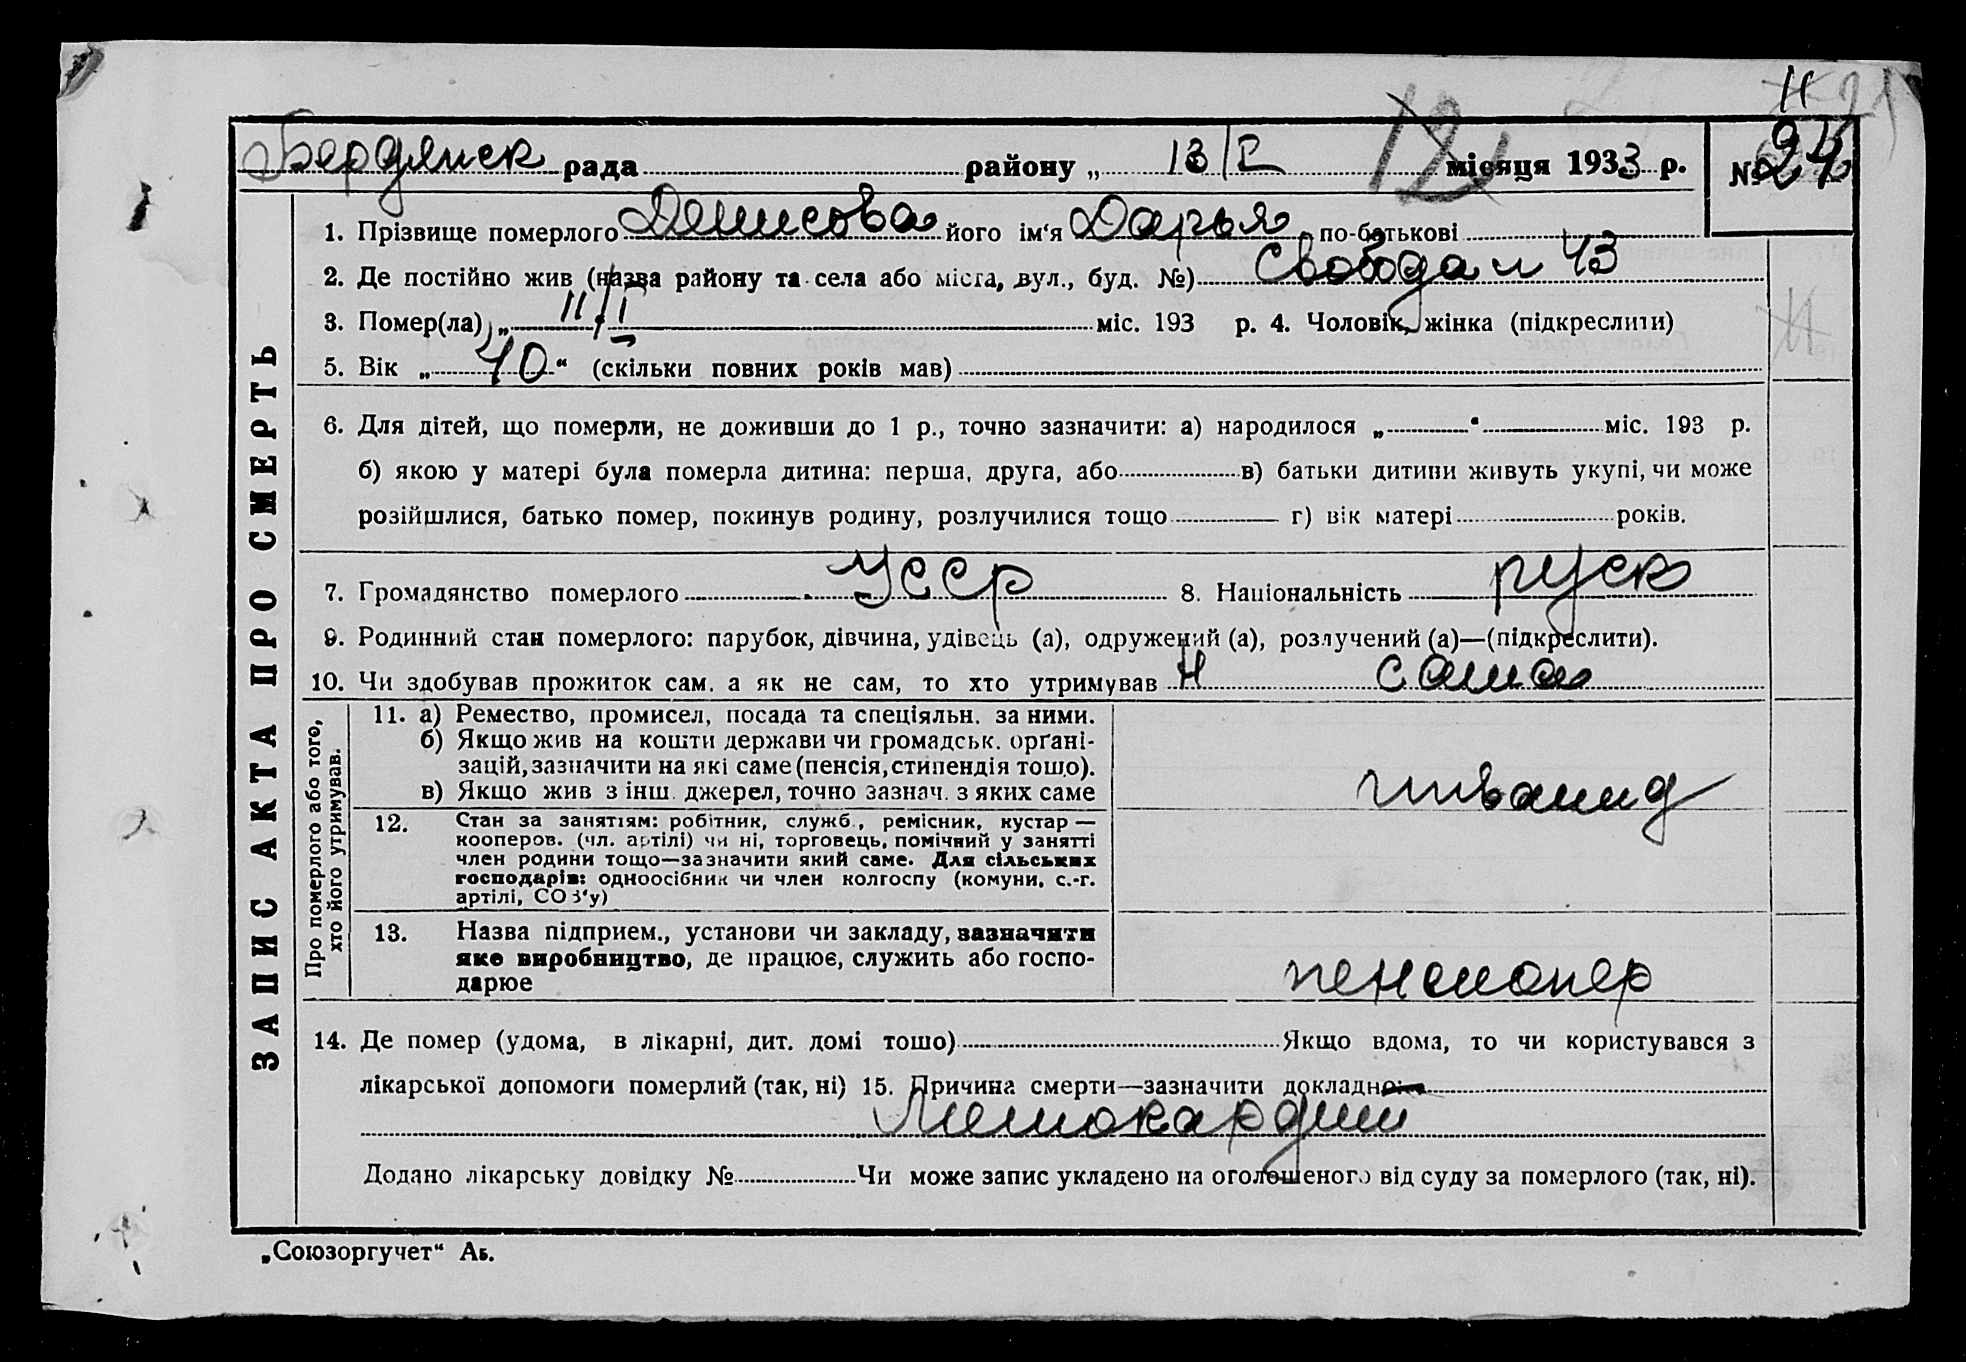 11
Бердянск рада района „ 13/I місяця 1933 р. № 24
1. Прізвище померлого Денисова його ім'я Дарья по-батькові
2. Де постійно жив (назва району та села або міста, вул., буд. №) Свобода 43
3. Помер(ла) „ 11/I міс. 193 р. 4. Чоловік, жінка (підкреслити)
5. Вік „ 40 “ (скільки повних років мав)
6. Для дітей, що померли, не доживши до 1 р., точно зазначити: а) народилося „ “ міс. 193 р.
б) якою у матері була померла дитина: перша, друга, або в) батьки дитини живуть укупі, чи може
розійшлися, батько помер, покинув родину, розлучилися тощо г) вік матері років.
7. Громадянство померлого УССР 8. Національність руск
9. Родинний стан померлого: парубок, дівчина, удівець (а), одружений (а), розлучений (а)—(підкреслити).
10. Чи здобував прожиток сам, а як не сам, то хто утримував сама
11. а) Ремество, промисел, посада та спеціяльн. за ними.
б) Якщо жив на кошти держави чи громадськ. орґані-
зацій, зазначити на які саме (пенсія, стипендія тощо).
в) Якщо жив з інш. джерел, точно зазнач. з яких саме
инвалид
12. Стан за заняттям: робітник, служб., ремісник, кустар —
кооперов. (чл. артілі) чи ні, торговець, помічний у занятті
член родини тощо—зазначити який саме. Для сільських
господарів: одноосібник чи член колгоспу (комуни, с.-г.
артілі, СОЗ'у)
13. Назва підприєм., установи чи закладу, зазначити
яке виробництво, де працює, служить або госпо-
дарює
пенсионер
14. Де помер (удома, в лікарні, дит. домі тощо) Якщо вдома, то чи користувався з
лікарської допомоги померлий (так, ні) 15. Причина смерти—зазначити докладно
Миокардит
Додано лікарську довідку № Чи може запис укладено на оголошеного від суду за померлого (так, ні).
„Союзоргучет“ Аб.
ЗАПИС АКТА ПРО СМЕРТЬ
Про померлого або того,
хто його утримував.